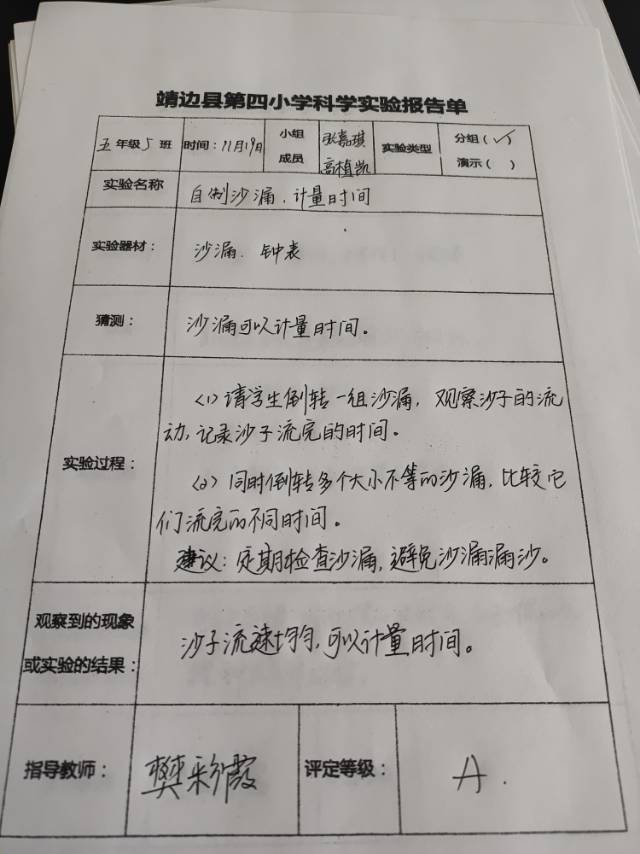 靖边县第四小学科学实验报告单
五年级5班 时间：11月19日 小组成员 张嘉琪 高植凯 实验类型 分组（√） 演示（ ）
实验名称 自制沙漏，计量时间
实验器材： 沙漏、钟表
猜测： 沙漏可以计量时间。
实验过程：
<1>请学生倒转一组沙漏，观察沙子的流
动，记录沙子流完的时间。
<2>同时倒转多个大小不等的沙漏，比较它
们流完的不同时间。
建议：定期检查沙漏，避免沙漏漏沙。
观察到的现象
或实验的结果： 沙子流速均匀，可以计量时间。
指导教师： 樊彩霞 评定等级： A.